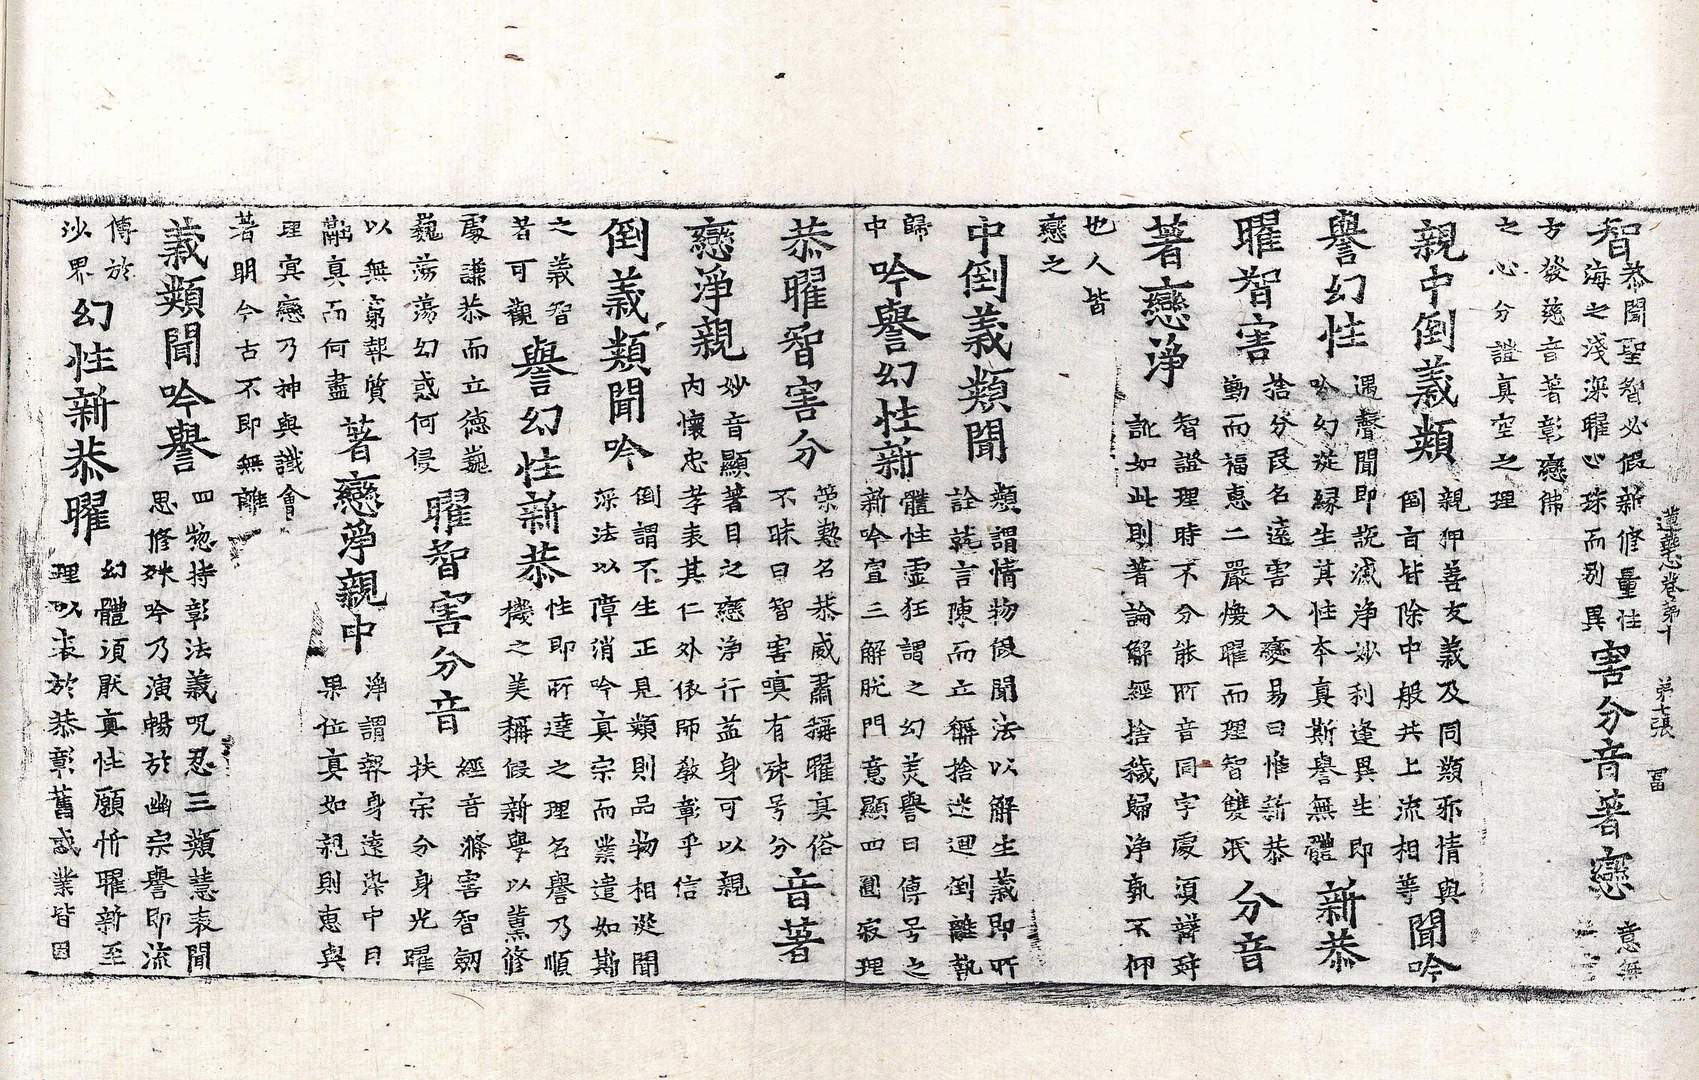 智
恭聞聖智必假新修量性
海之淺深曜心珠而別異
害分音著戀
意無
蓮華心卷第十 第七張 冨
方發慈音著彰戀佛
之心分證真空之理
親中倒義類
親狎善友義及同類邪情與
倒盲皆除中般共上流相等
聞吟
譽幻性
遇聲聞即說滅淨妙利逢異生即
吟幻從緣生其性本真斯譽無體
新恭
曜智害
捨分段名遠害入變易曰惟新恭
勤而福惠二嚴煥曜而理智雙泯
分音
著戀淨
智證理時不分能所音同字處須辯辤
訛如此則著論解經捨穢歸淨孰不仰
也人皆
戀之
中倒義類聞
類謂情物假聞法以解生義即所
詮就言陳而立稱捨迷迴倒離執
歸
中
吟譽幻性新
體性靈狂謂之幻美譽曰傳号之
新吟宣三解脫門意顯四圓寂理
恭曜智害分
榮懃名恭威肅稱曜真俗
不昧曰智害嗔有殊号分
音著
戀淨親
妙音顯著目之戀淨行益身可以親
內懷忠孝表其仁外依師教彰乎信
倒義類聞吟
倒謂不生正見類則品物相從聞
深法以障消吟真宗而業遣如斯
之義智
若可觀
譽幻性新恭
性即所達之理名譽乃順
機之美稱假新學以薰修
處謙恭而立德巍
巍蕩蕩幻惑何侵
曜智害分音
經音滌害智劒
扶宗分身光曜
以無窮報質
融真而何盡
著戀淨親中
淨謂報身遠染中目
果位真如親則惠與
理冥戀乃神與識會
著明今古不即無離
義類聞吟譽
四惣持彰法義咒忍三類慧表聞
思修殊吟乃演暢於幽宗譽即流
傳於
沙界
幻性新恭曜
幻體須厭真性願忻曜新至
理以表於恭彰舊惑業皆因